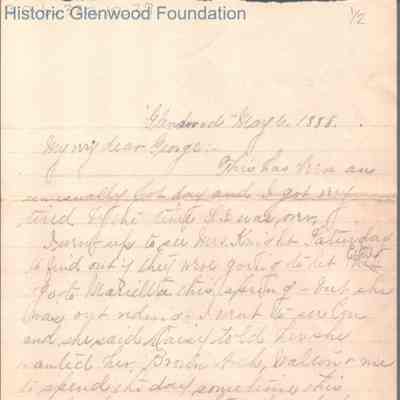 Historic Glenwood Foundation
1/2
Glenwood May 6. 1888.
My very dear George:-
This has been an
unusually hot day and I got very
tired by the time S.S. was over,
I went up to see Mrs. Knight Saturday
to find out if they were going to let
go to Marietta this spring - but she
was out riding. I went to see
and she said Daisy told her she
wanted her, Archie, Walton & me
to spend the day some time this